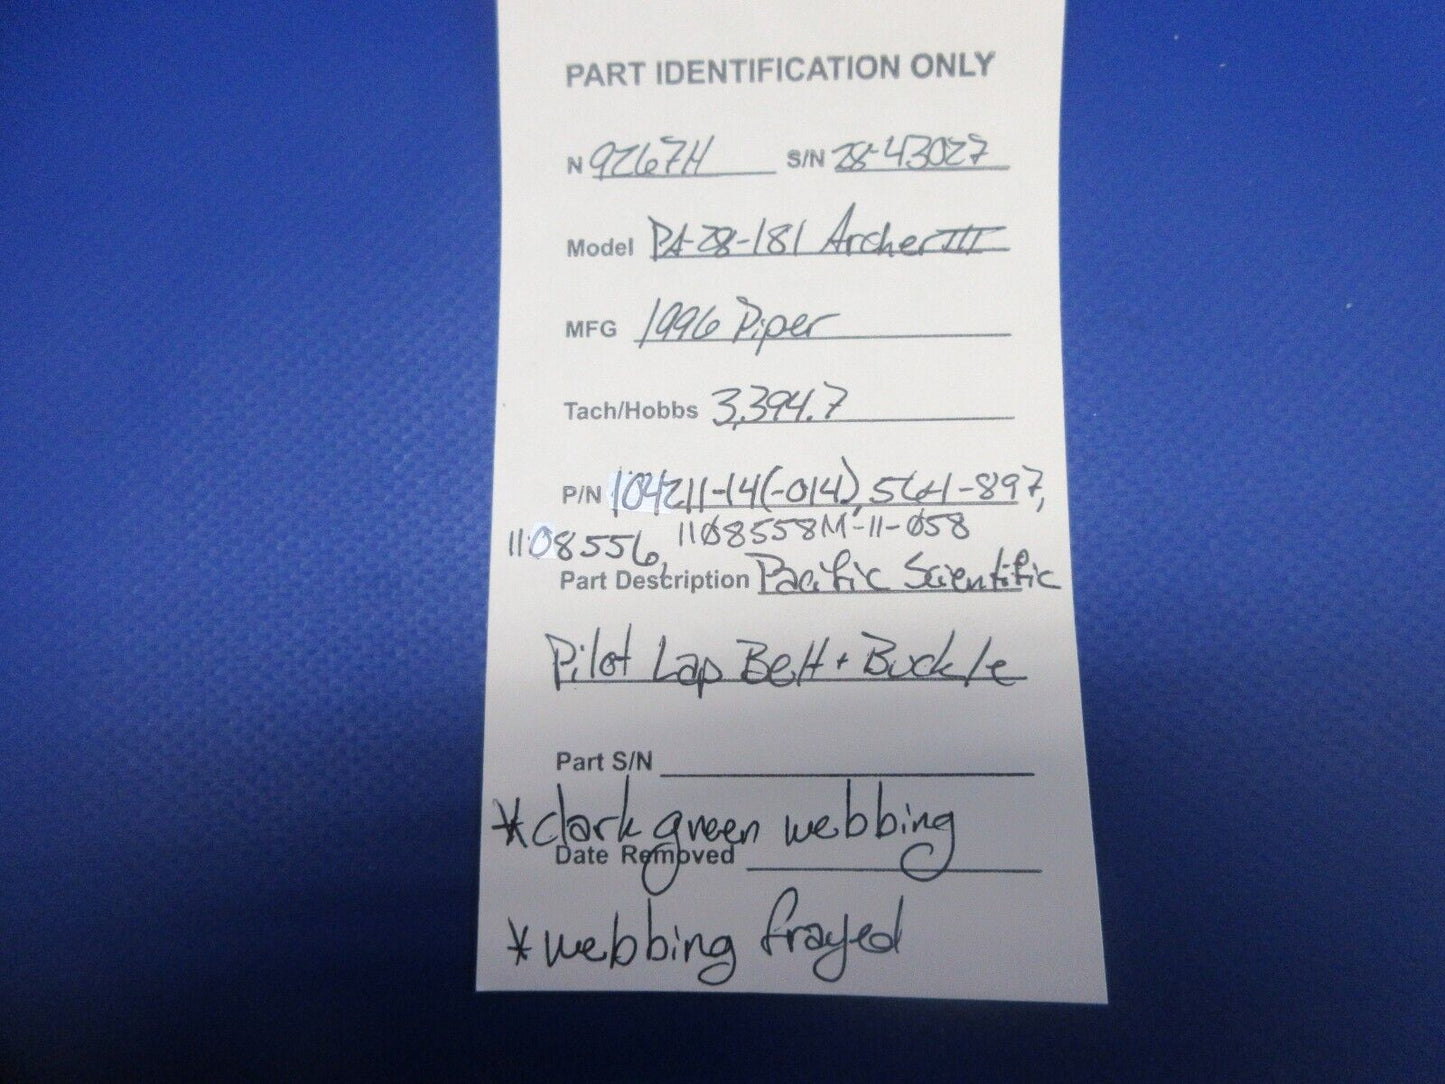 PART IDENTIFICATION ONLY
N 9267H S/N 28-43027
Model PA-28-181 Archer III
MFG 1996 Piper
Tach/Hobbs 3,394.7
P/N 104211-14(-014), 561-897,
1108556, 11Ø8558M-11-Ø58
Part Description Pacific Scientific
Pilot Lap Belt + Buckle
Part S/N
*dark green webbing
Date Removed
*webbing frayed